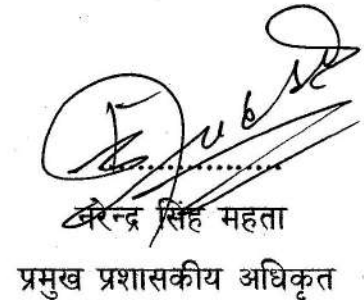 ..................
नरेन्द्र सिंह महता
प्रमुख प्रशासकीय अधिकृत